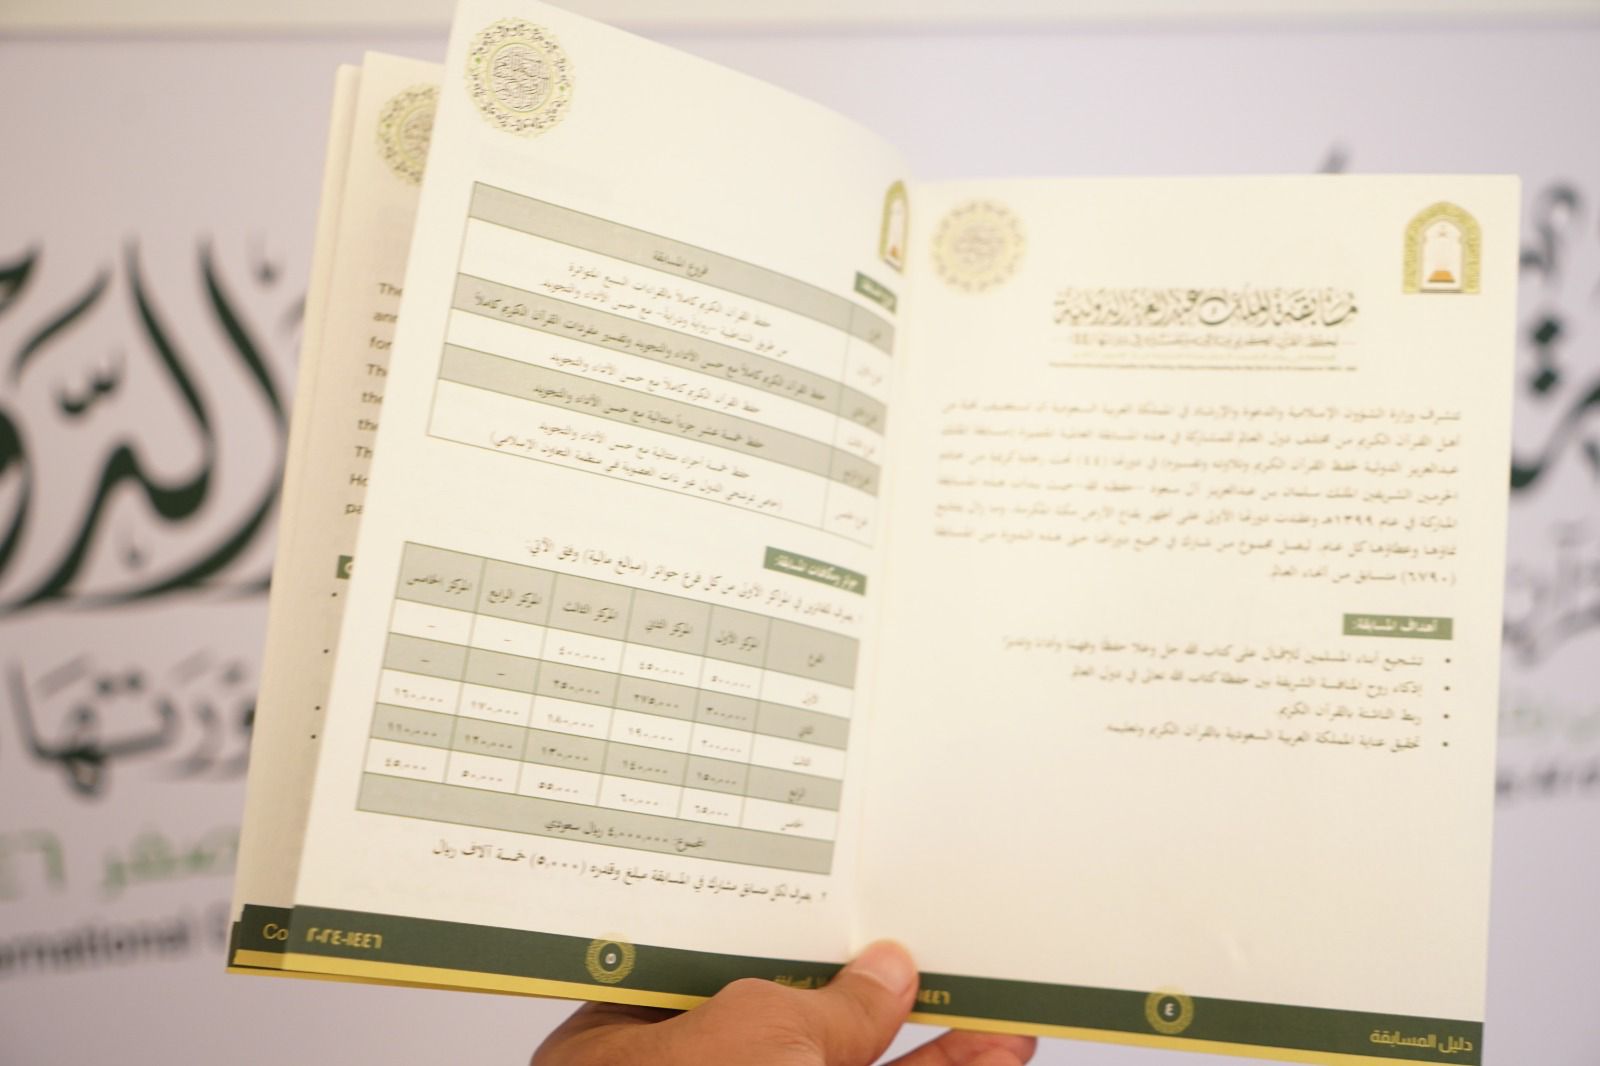 مسابقة الملك عبدالعزيز الدولية
لحفظ القرآن الكريم وتلاوته وتفسيره في دورتها 44
تتشرف وزارة الشؤون الإسلامية والدعوة والإرشاد في المملكة العربية السعودية أن تستضيف نخبة من
أهل القرآن الكريم من مختلف دول العالم للمشاركة في هذه المسابقة العالمية المتميزة (مسابقة الملك
عبدالعزيز الدولية لحفظ القرآن الكريم وتلاوته وتفسيره) في دورتها (٤٤) تحت رعاية كريمة من خادم
الحرمين الشريفين الملك سلمان بن عبدالعزيز آل سعود -حفظه الله- حيث بدأت هذه المسابقة
المباركة في عام ١٣٩٩هـ وعقدت دورتها الأولى على أطهر بقاع الأرض مكة المكرمة، وما زال يتتابع
نماؤها وعطاؤها كل عام، ليصل مجموع من شارك في جميع دوراتها حتى هذه الدورة من المسابقة
(٦٧٩٠) متسابق من أنحاء العالم.
أهداف المسابقة:
• تشجيع أبناء المسلمين للإقبال على كتاب الله جل وعلا حفظًا وفهمًا وأداءً وتدبرًا
• إذكاء روح المنافسة الشريفة بين حفظة كتاب الله تعالى في دول العالم
• ربط الناشئة بالقرآن الكريم
• تحقيق عناية المملكة العربية السعودية بالقرآن الكريم وتعليمه
دليل المسابقة
٤
١٤٤٦
فروع المسابقة
حفظ القرآن الكريم كاملاً بالقراءات السبع المتواترة
من طريق الشاطبية -رواية ودراية- مع حسن الأداء والتجويد
حفظ القرآن الكريم كاملاً مع حسن الأداء والتجويد وتفسير مفردات القرآن الكريم كاملاً
حفظ القرآن الكريم كاملاً مع حسن الأداء والتجويد
حفظ خمسة عشر جزءاً متتالية مع حسن الأداء والتجويد
حفظ خمسة أجزاء متتالية مع حسن الأداء والتجويد
(خاص بمرشحي الدول غير ذات العضوية في منظمة التعاون الإسلامي)
جوائز ومكافآت المسابقة:
١ يصرف للفائزين في المراكز الأولى من كل فرع جوائز (مبالغ مالية) وفق الآتي:
الفرع المركز الأول المركز الثاني المركز الثالث المركز الرابع المركز الخامس
الأول ٥٠٠،٠٠٠ ٤٥٠،٠٠٠ ٤٠٠،٠٠٠ – –
الثاني ٣٠٠،٠٠٠ ٢٧٥،٠٠٠ ٢٥٠،٠٠٠ – –
الثالث ٢٠٠،٠٠٠ ١٩٠،٠٠٠ ١٨٠،٠٠٠ ١٧٠،٠٠٠ ١٦٠،٠٠٠
الرابع ١٥٠،٠٠٠ ١٤٠،٠٠٠ ١٣٠،٠٠٠ ١٢٠،٠٠٠ ١١٠،٠٠٠
الخامس ٦٥،٠٠٠ ٦٠،٠٠٠ ٥٥،٠٠٠ ٥٠،٠٠٠ ٤٥،٠٠٠
المجموع: ٤،٠٠٠،٠٠٠ ريال سعودي
٢ يصرف لكل متسابق مشارك في المسابقة مبلغ وقدره (٥،٠٠٠) خمسة آلاف ريال
٥
١٤٤٦-٢٠٢٤
Co